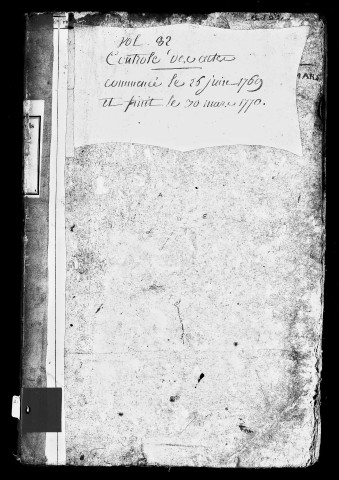 vol 82
Controle des actes
commencé le 26 juin 1769
et finit le 30 mars 1770.